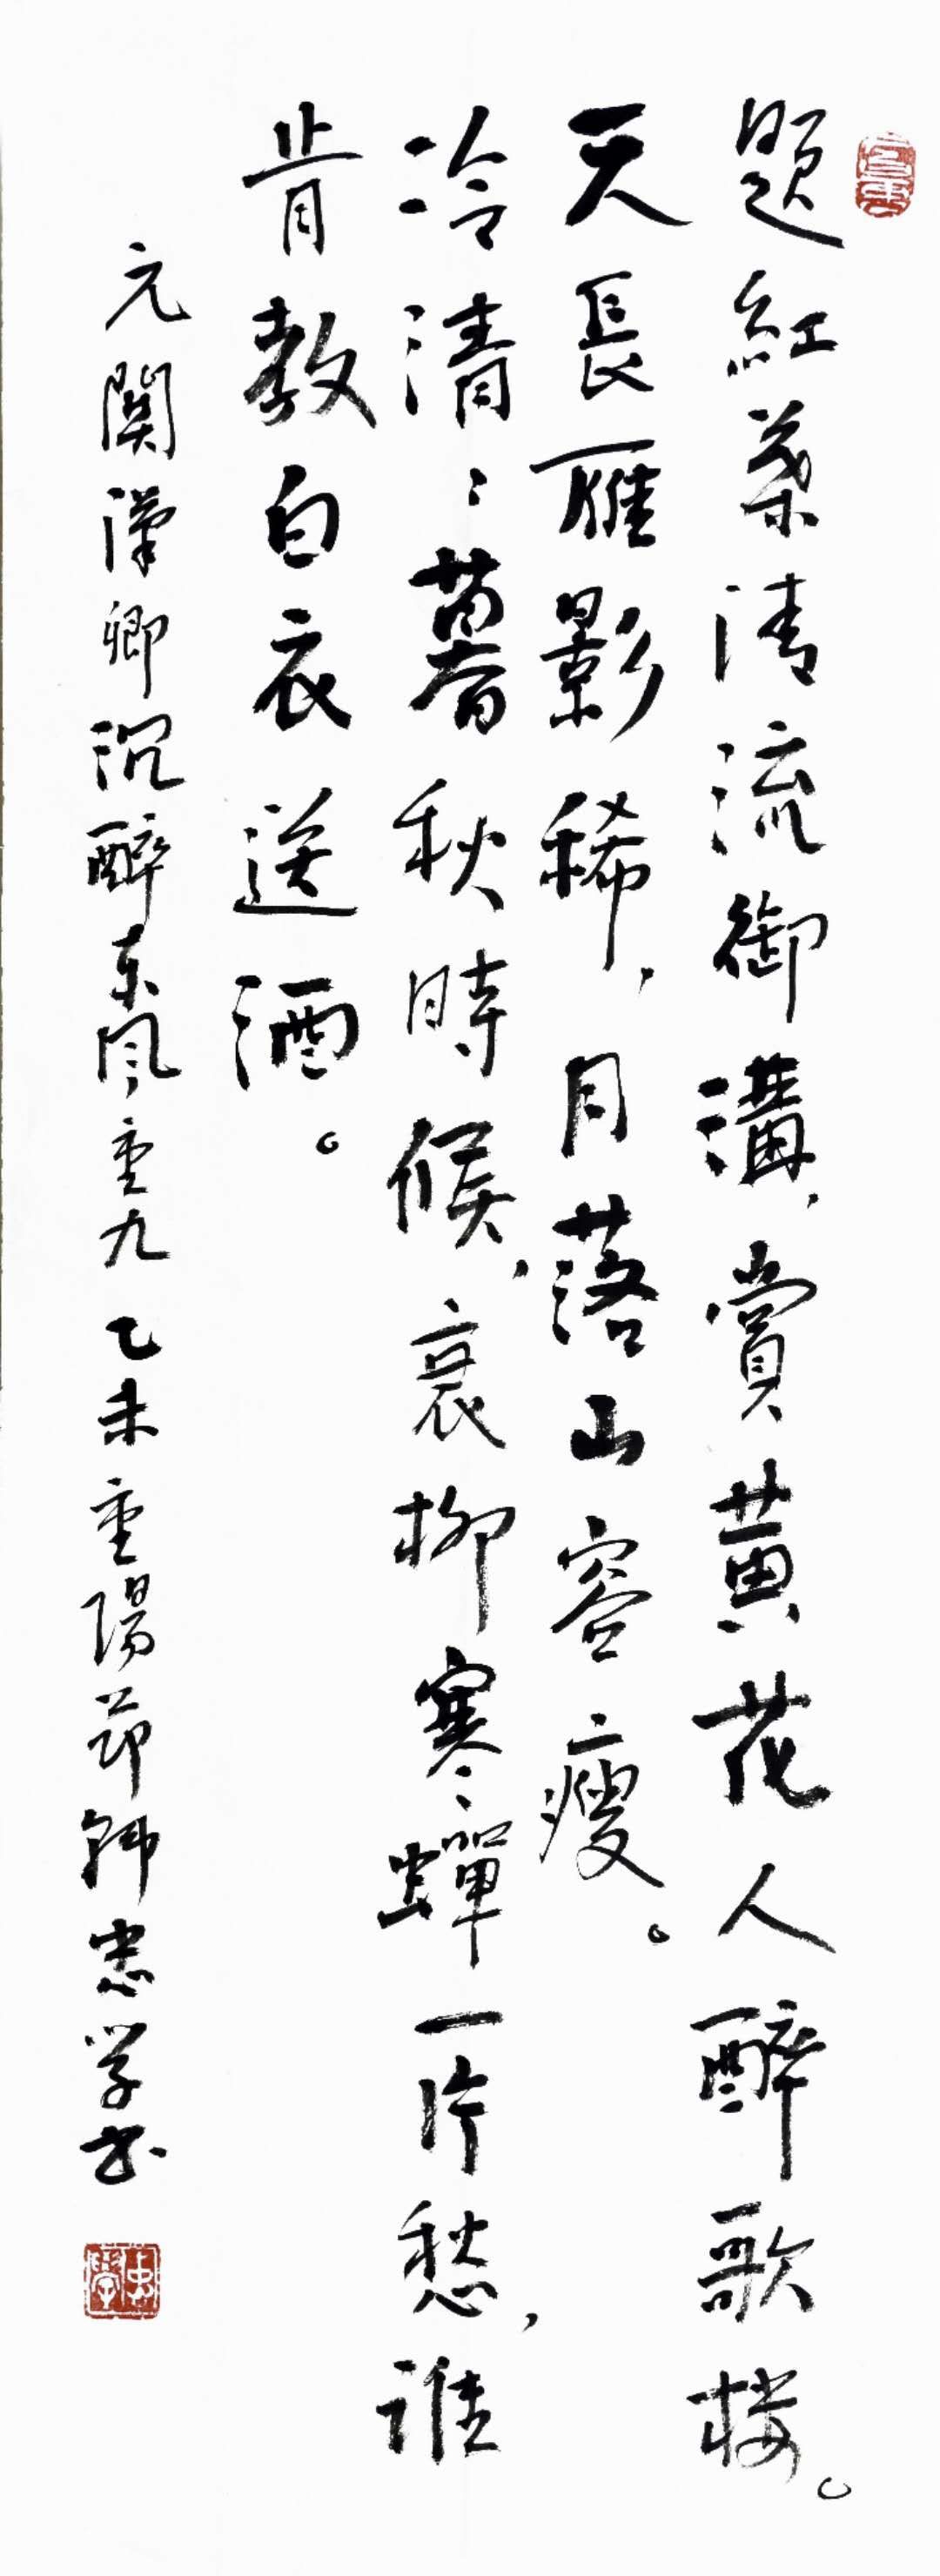 題紅葉清流御溝，賞黄花人醉歌楼。
天長雁影稀，月落山容瘦。
冷清〻暮秋時候，衰柳寒蟬一片愁，誰
肯教白衣送酒。
元關漢卿沉醉東風重九 乙未重陽節韩忠学书
忠學